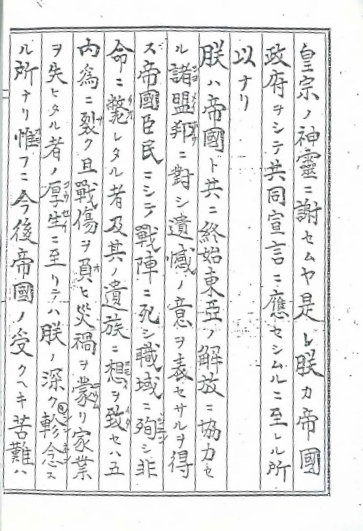 皇宗ノ神靈ニ謝セムヤ是レ朕カ帝國
政府ヲシテ共同宣言ニ應セシムルニ至レル所
以ナリ
朕ハ帝國ト共ニ終始東亞ノ解放ニ協力セ
ル諸盟邦ニ對シ遺憾ノ意ヲ表セサルヲ得
ス帝國臣民ニシテ戰陣ニ死シ職域ニ殉シ非
命ニ斃レタル者及其ノ遺族ニ想ヲ致セハ五
內爲ニ裂ク且戰傷ヲ負ヒ災禍ヲ蒙リ家業
ヲ失ヒタル者ノ厚生ニ至リテハ朕ノ深ク軫念ス
ル所ナリ惟フニ今後帝國ノ受クヘキ苦難ハ